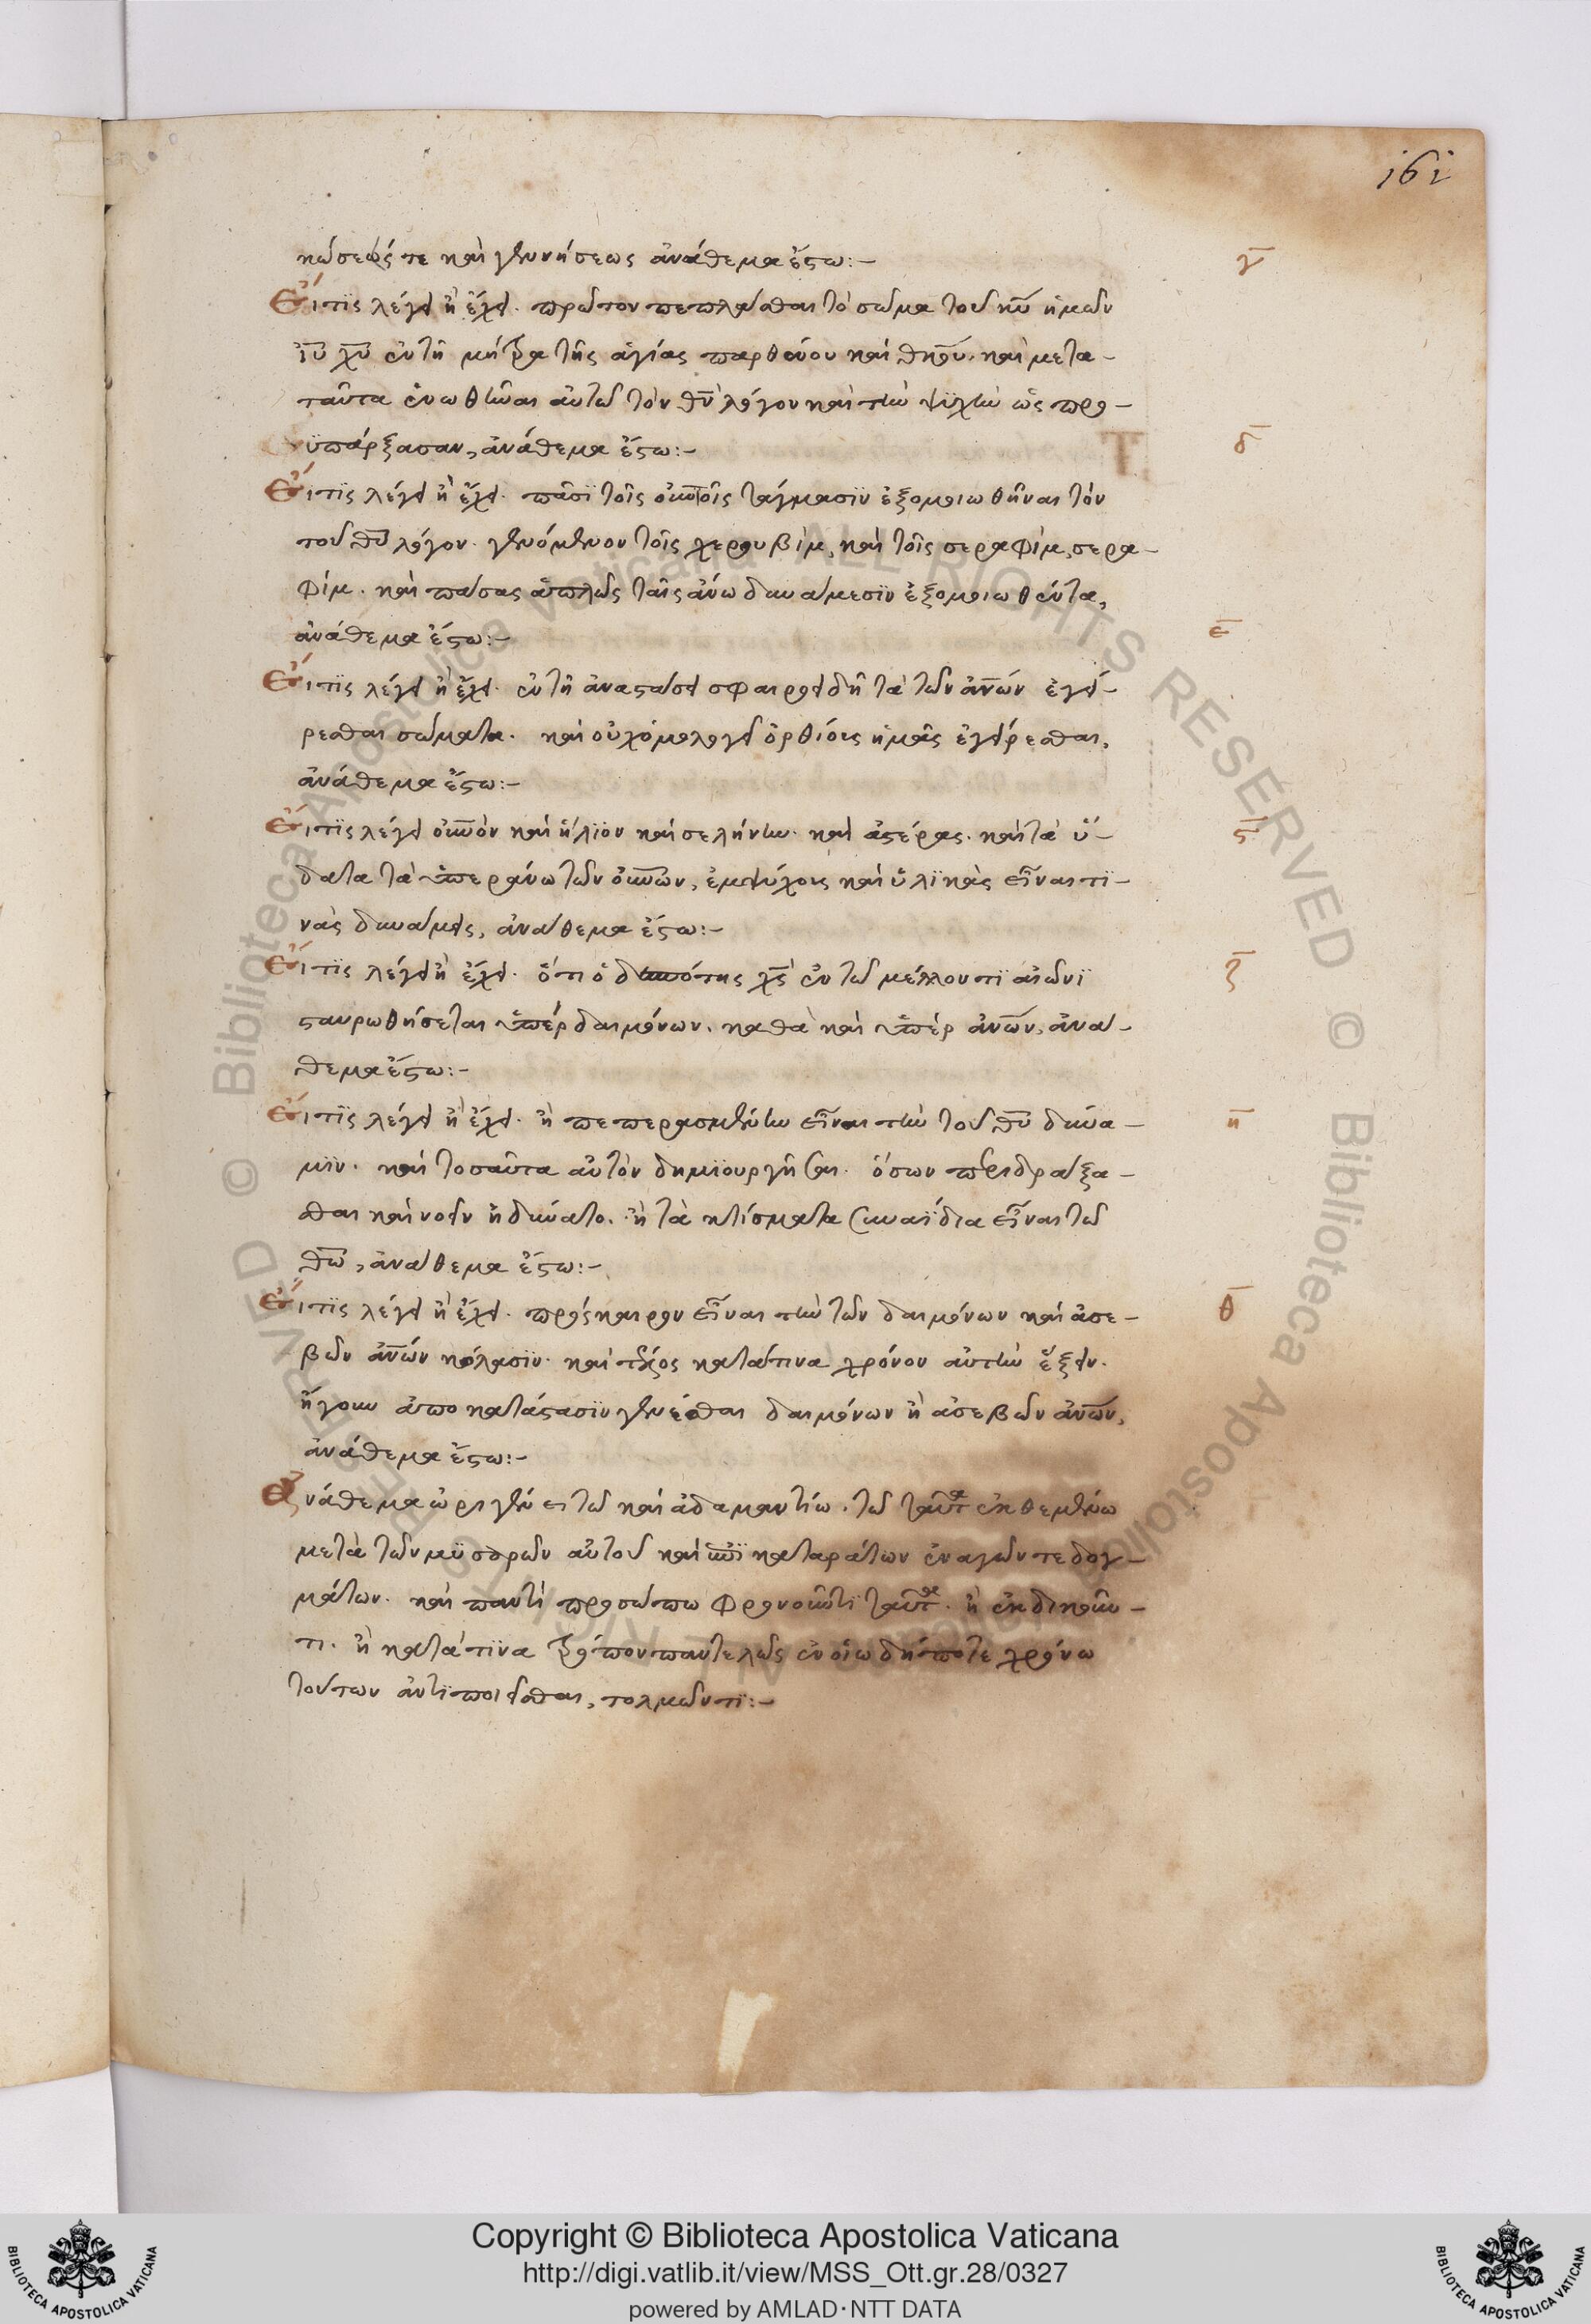 161
κώσεώς τε καὶ γεννήσεως ἀνάθεμα ἔστω:–
γ̅
Εἴ τϊς λέγει ἢ ἔχει· πρῶτον πεπλάσθαι τὸ σῶμα τοῦ κ̅υ̅ ἡμῶν
ι̅υ̅ χ̅υ̅ ἐν τῆ μήτρα τῆς ἁγίας παρθένου καὶ θ̅κ̅ου̅· καὶ μετα–
ταῦτα ἑνωθῆναι αὐτῶ τὸν θ̅ν̅ λόγον καὶ τὴν ψϋχὴν ὡς προ–
ϋπάρξασαν, ἀνάθεμα ἔστω:–
δ̅
Εἴ τϊς λέγει ἢ ἔχει· πᾶσϊ τοῖς ο̅υ̅ν̅οῖς τάγμασϊν ἐξομοιωθῆναι τὸν
τοῦ θ̅υ̅ λόγον· γενόμενον τοῖς χερουβὶμ, καὶ τοῖς σεραφὶμ, σερα–
φίμ· καὶ πάσας ἁπλῶς ταῖς ἄνω δυνάμεσϊν ἐξομοιωθέντα,
ἀνάθεμα ἔστω:–
ε̅
Εἴ τϊς λέγει ἢ ἔχει· ἐν τῆ ἀναστάσει σφαιροειδῆ τὰ τῶν α̅ν̅ῶν ἐγεί–
ρεσθαι σώματα· καὶ οὐχ ὁμολογεῖ ὀρθίους ἡμᾶς ἐγείρεσθαι,
ἀνάθεμα ἔστω:–
Εἴ τϊς λέγει ο̅υ̅ν̅ὸν καὶ ἥλϊον καὶ σελήνην· καὶ ἀστέρας· καὶ τὰ ὕ–
ς̅
δατα τὰ ὑπεράνω τῶν ο̅υ̅ν̅ῶν, ἐμψύχους καὶ ὑλϊκὰς εἶναι τϊ–
νὰς δυνάμεις, ἀνάθεμα ἔστω:–
Εἴ τϊς λέγει ἢ ἔχει· ὅτι ὁ δεσπότης χ̅ς̅ ἐν τῶ μέλλοντϊ αἰῶνϊ
ζ̅
σταυρωθήσεται ὑπὲρ δαιμόνων· καθὰ καὶ ὑπὲρ α̅ν̅ῶν, ἀνά–
θεμα ἔστω:–
Εἴ τϊς λέγει ἢ ἔχει· ἢ πεπερασμένην εἶναι τὴν τοῦ θ̅υ̅ δύνα–
η̅
μϊν· καὶ τοσαῦτα αὐτὸν δημϊουργῆσαι· ὅσων περιδράξα–
σθαι καὶ νοεῖν ἠδύνατο· ἢ τὰ κτίσματα συναΐδια εἶναι τῶ
θ̅ω̅, ἀνάθεμα ἔστω:–
Εἴ τϊς λέγει ἢ ἔχει· πρόσκαιρον εἶναι τὴν τῶν δαιμόνων καὶ ἀσε–
θ̅
βῶν α̅ν̅ῶν κόλασϊν· καὶ τέλος κατά τινα χρόνον αὐτὴν ἕξειν·
ἤγουν ἀποκατάστασϊν γενέσθαι δαιμόνων ἢ ἀσεβῶν α̅ν̅ῶν,
ἀνάθεμα ἔστω:–
Ἀνάθεμα ὠριγένει τῶ καὶ ἀδαμαντίω· τῶ ταῦτα ἐκθεμένω
μετὰ τῶν μϋσαρῶν αὐτοῦ καὶ καταράτων ἐναγῶν τε δογ–
μάτων· καὶ παντὶ προσώπω φρονοῦντϊ ταῦτα· ἢ ἐκδικοῦν–
τι· ἢ κατά τϊνα τρόπον παντελῶς ἐν οἵω δήποτε χρόνω
τούτων ἀντϊποιεῖσθαι, τολμῶντϊ:–
Copyright © Biblioteca Apostolica Vaticana
http://digi.vatlib.it/view/MSS_Ott.gr.28/0327
powered by AMLAD·NTT DATA